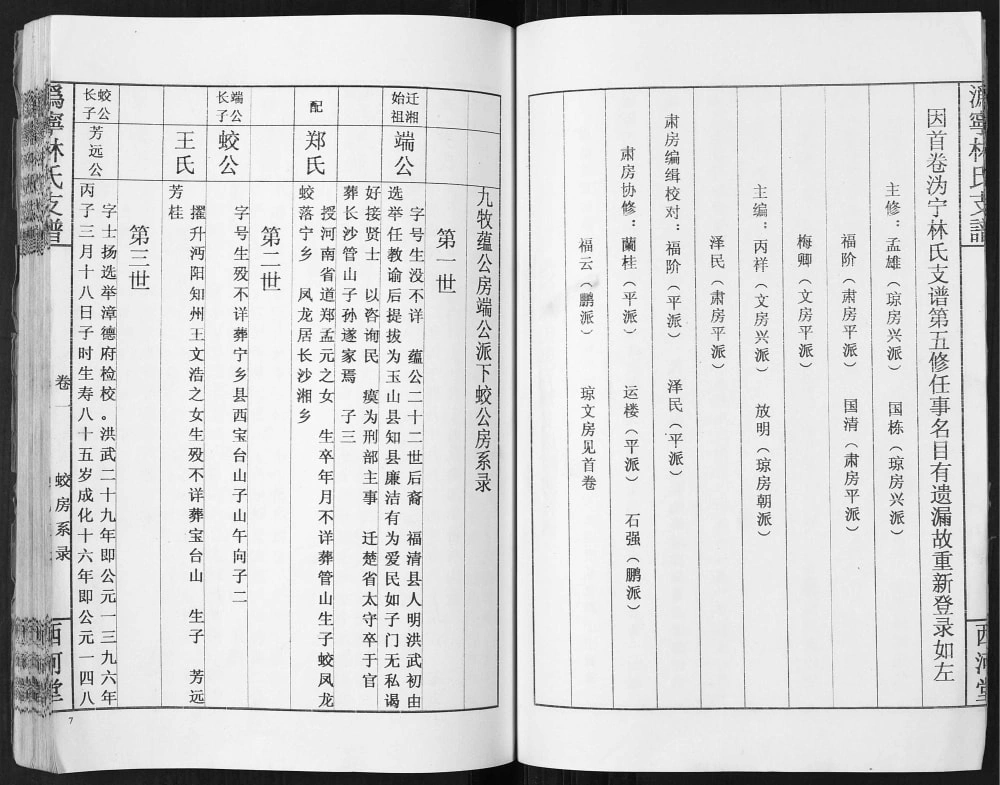 潙寧林氏支譜 西河堂
因首卷沩宁林氏支谱第五修任事名目有遗漏故重新登录如左
主修：孟雄（琼房兴派） 国栋（琼房兴派）
福阶（肃房平派） 国清（肃房平派）
梅卿（文房平派）
主编：丙祥（文房兴派） 放明（琼房朝派）
泽民（肃房平派）
肃房编缉校对：福阶（平派） 泽民（平派）
肃房协修：蘭桂（平派） 运楼（平派） 石强（鹏派）
福云（鹏派） 琼文房见首卷
九牧蕴公房端公派下蛟公房系录
第一世
迁湘
始祖
端公
字号生没不详 蕴公二十二世后裔 福清县人明洪武初由
选举任教谕后提拔为玉山县知县廉洁有为爱民如子门无私谒
好接贤士 以咨询民 瘼为刑部主事 迁楚省太守卒于官
葬长沙管山子孙遂家焉 子三
配
郑氏
授河南省道郑孟元之女 生卒年月不详葬管山生子蛟凤龙
蛟落宁乡 凤龙居长沙湘乡
第二世
端公
长子
蛟公
字号生殁不详葬宁乡县西宝台山子山午向子二
王氏
擢升沔阳知州王文浩之女生殁不详葬宝台山 生子 芳远
芳桂
第三世
蛟公
长子
芳远公
字士扬选举漳德府检校。洪武二十九年即公元一三九六年
丙子三月十八日子时生寿八十五岁成化十六年即公元一四八
潙寧林氏支譜 卷一 蛟房系录 西河堂
7